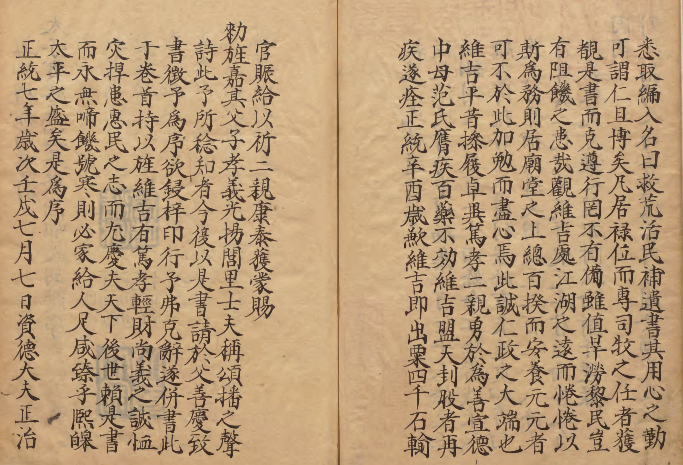 悉取編入名曰救荒治民補遺書其用心之勤
可謂仁且博矣凡居祿位而專司牧之任者獲
覩是書而克遵行罔不有備雖值旱澇黎民豈
有阻饑之患哉觀維吉處江湖之遠而惓惓以
斯為務則居廟堂之上總百揆而安養元元者
可不於此加勉而盡心焉此誠仁政之大端也
維吉平昔操履卓異篤孝二親勇於為善宣德
中母范氏膺疾百藥不効維吉盟天刲股者再
疾遂痊正統辛酉歲歉維吉即出粟四千石輸
官賑給以祈二親康泰獲蒙賜
勑旌嘉其父子孝義光揚閭里士夫稱頌播之聲
詩此予所稔知者今復以是書請於父善慶致
書徵予為序欲鋟梓印行予弗克辭遂併書此
于卷首持以旌維吉有篤孝輕財尚義之誠恤
灾捍患惠民之志而尤慶夫天下後世賴是書
而永無啼饑號寒則必家給人足咸臻乎熙皞
太平之盛矣是為序
正統七年歲次壬戌七月七日資德大夫正治